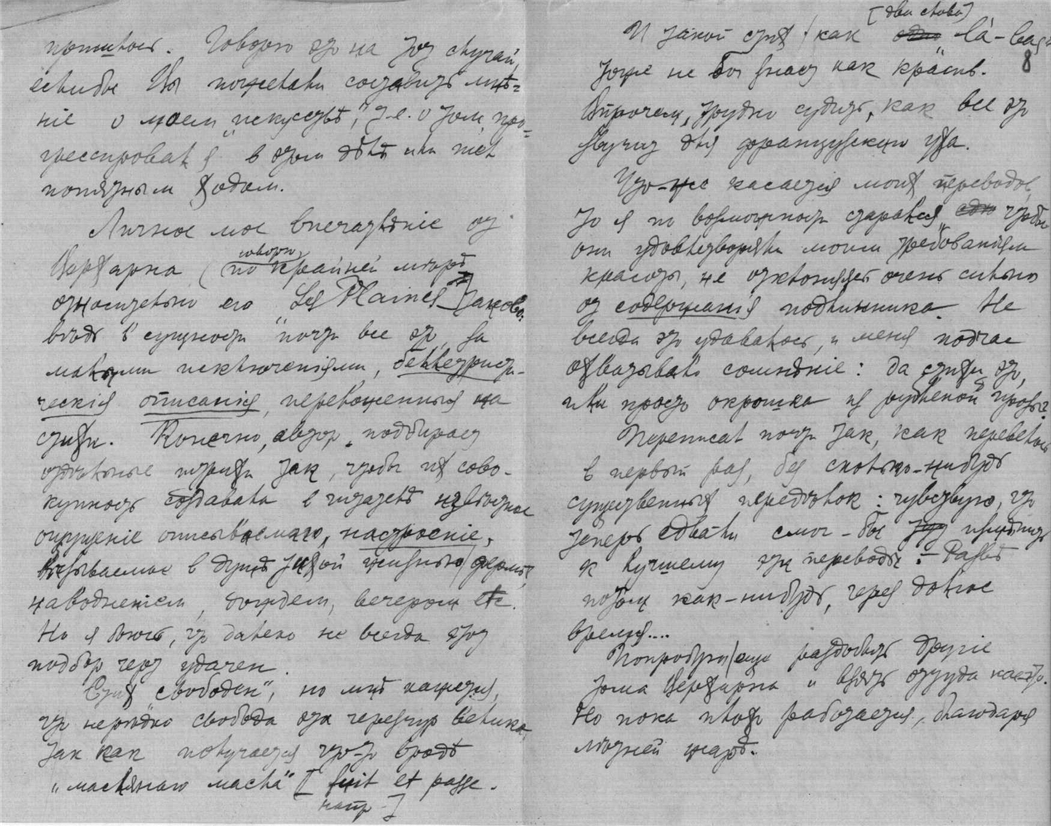 прошлось. Говорю это на тот случай,
еслибы Вы пожелали составить мнѣ-
ніе о моем „искусствѣ“, т. е. о том, про-
грессировал я в этом дѣлѣ или шел
попятным ходом.
Личное мое впечатлѣніе от
Верхарна (по крайней мѣрѣ
говорю
относительно его Les Plaines) таково:
вѣдь в сущности почти все это, за
малыми исключеніями, беллетристи-
ческія описанія, переложенныя на
стихи. Конечно, автор подбирает
отдѣльные штрихи так, чтобы их сово-
купность создавала в читателѣ
ощущеніе описываемаго, настроеніе,
вызываемое в душѣ тихой жизнью, фермой,
наводненіем, дождем, вечером etc.
Но я боюсь, что далеко не всегда этот
подбор черт удачен.
„Стих свободен“, но мнѣ кажется,
что нерѣдко свобода эта чересчур велика,
так как получается что-то вродѣ
„маслянаго масла“ [fuit et passe.
напр.]
[два слова]
И такой стих, как là-bas
8
тоже не Бог знает как красив.
Впрочем, трудно судить, как все это
звучит для французскаго уха.
Что-же касается моих переводов
то я по возможности старался, чтобы
они удовлетворяли моим требованіям
красоты, не отклоняясь очень сильно
от содержанія подлинника. Не
всегда это удавалось, и меня подчас
охватывало сомнѣніе: да стихи это,
или просто окрошка из рубленой прозы?
Переписал почти так, как перевелось
в первый раз, без сколько-нибудь
существенных передѣлок: чувствую, что
теперь едва ли смог-бы придти
к лучшему переводу. Развѣ
потом как-нибудь, через долгое
время....
Попробую еще раздобыть другіе
тома Верхарна и взять оттуда
Но пока плохо работается, благодаря
лѣтней жарѣ.